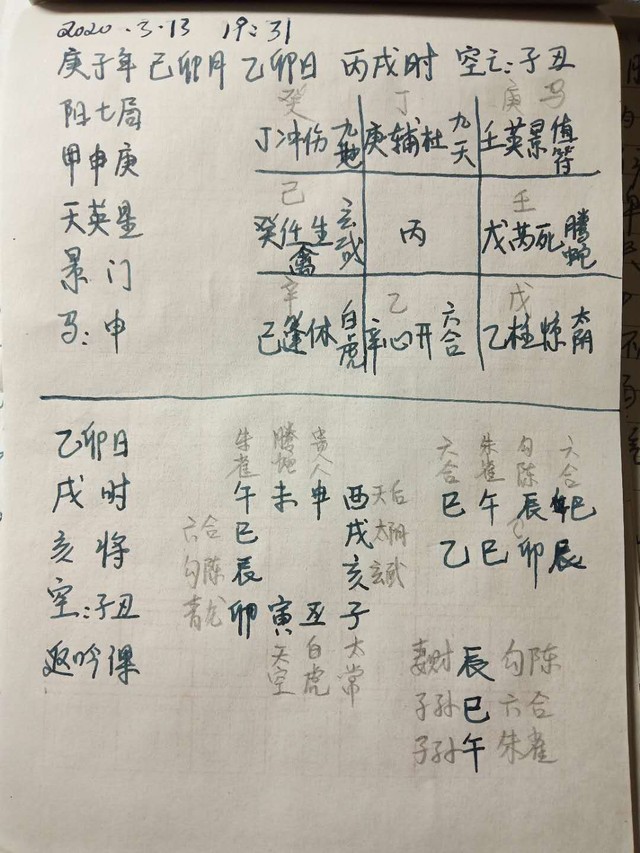 2020.3.13 19:31
庚子年 己卯月 乙卯日 丙戌时 空亡:子丑
阳七局
甲申庚
天英星
景门
马:申
癸 丁 庚 马
丁冲伤九地 庚辅杜九天 壬英景值符
己 壬
癸任生玄武 丙 戊芮死腾蛇
禽
辛 乙 戊
己蓬休白虎 辛心开六合 乙柱惊太阴
乙卯日
戌时
亥将
空:子丑
返吟课
朱雀 腾蛇 贵人
午 未 申 酉 天后
六合 巳 戌 太阴
勾陈 辰 亥 玄武
青龙 卯 寅 丑 子
天空 白虎 太常
六合 朱雀 勾陈 六合
巳 午 辰 巳
乙 巳 卯 辰
妻财 辰 勾陈
子孙 巳 六合
子孙 午 朱雀